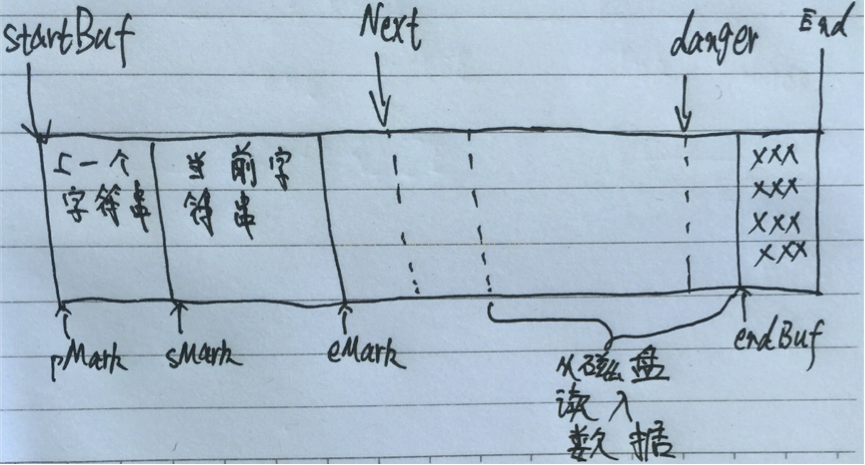 startBuf
Next
danger
End
上一个
字符串
当前字
符串
XXX
XXX
XXX
XXX
pMark
sMark
eMark
endBuf
从磁盘
读入
数据